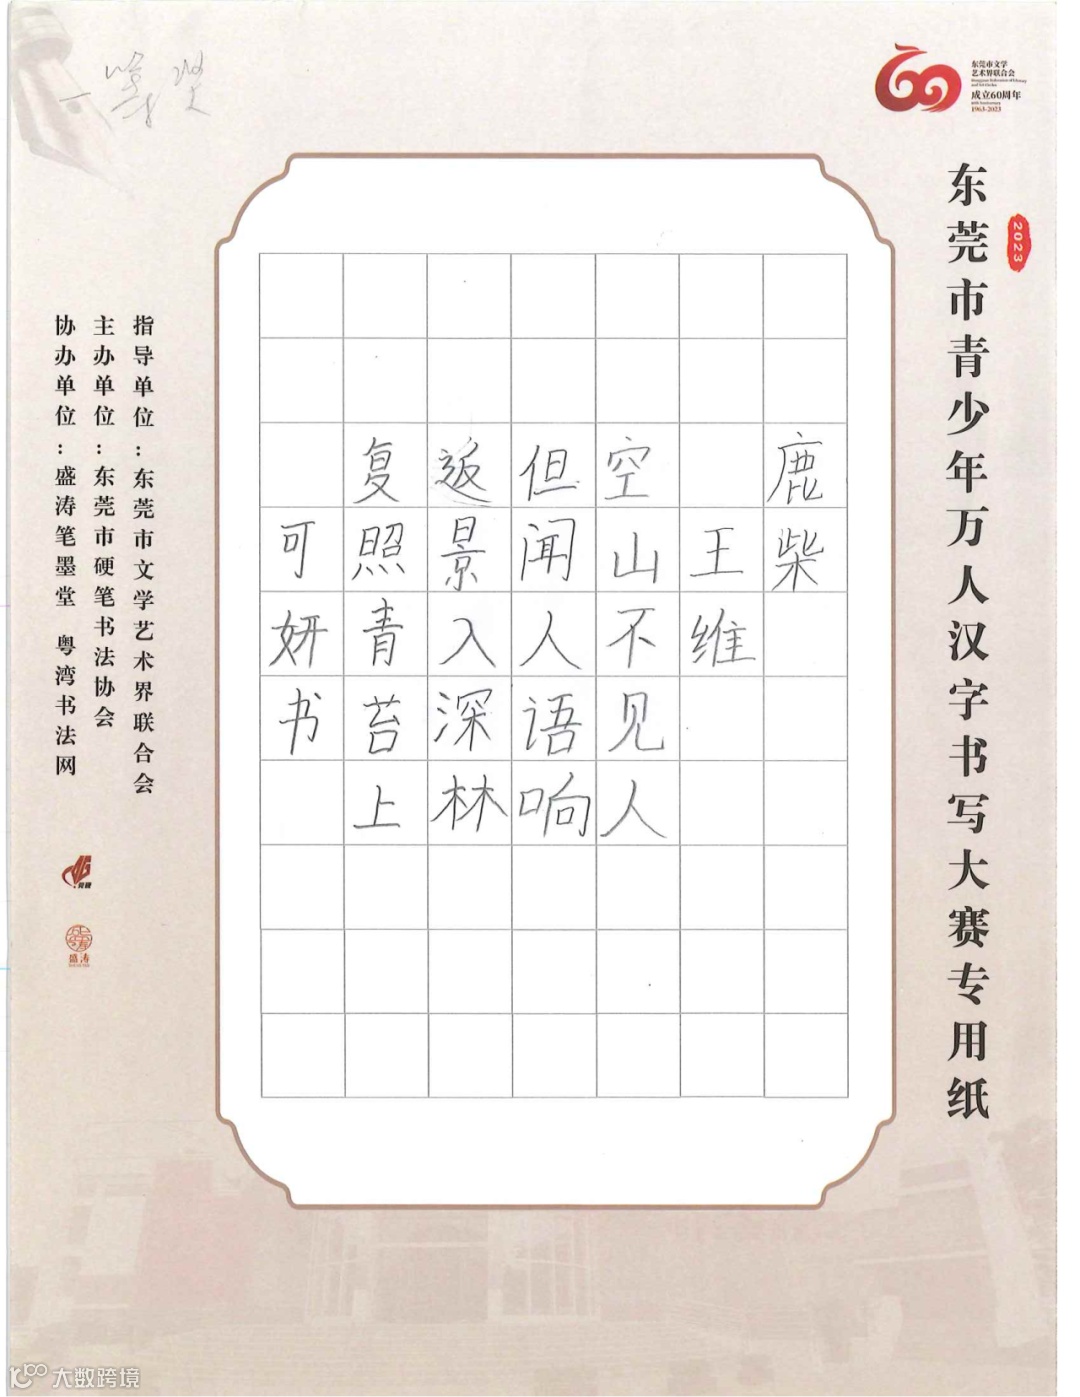 一等奖
60
东莞市文学
艺术界联合会
成立60周年
1963-2023
东莞市青少年万人汉字书写大赛专用纸
2023
鹿柴
王维
空山不见人
但闻人语响
返景入深林
复照青苔上
可妍书
指导单位：东莞市文学艺术界联合会
主办单位：东莞市硬笔书法协会
协办单位：盛涛笔墨堂 粤湾书法网
盛涛
大数跨境